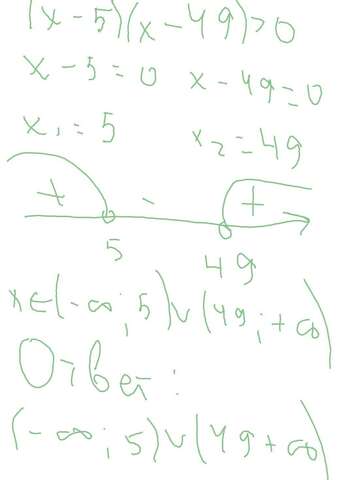 (x-5)(x-49)>0
x-5=0 x-49=0
x₁=5 x₂=49
+ - +
5 49
x∈(-∞;5)∪(49;+∞)
Ответ:
(-∞;5)∪(49+∞)